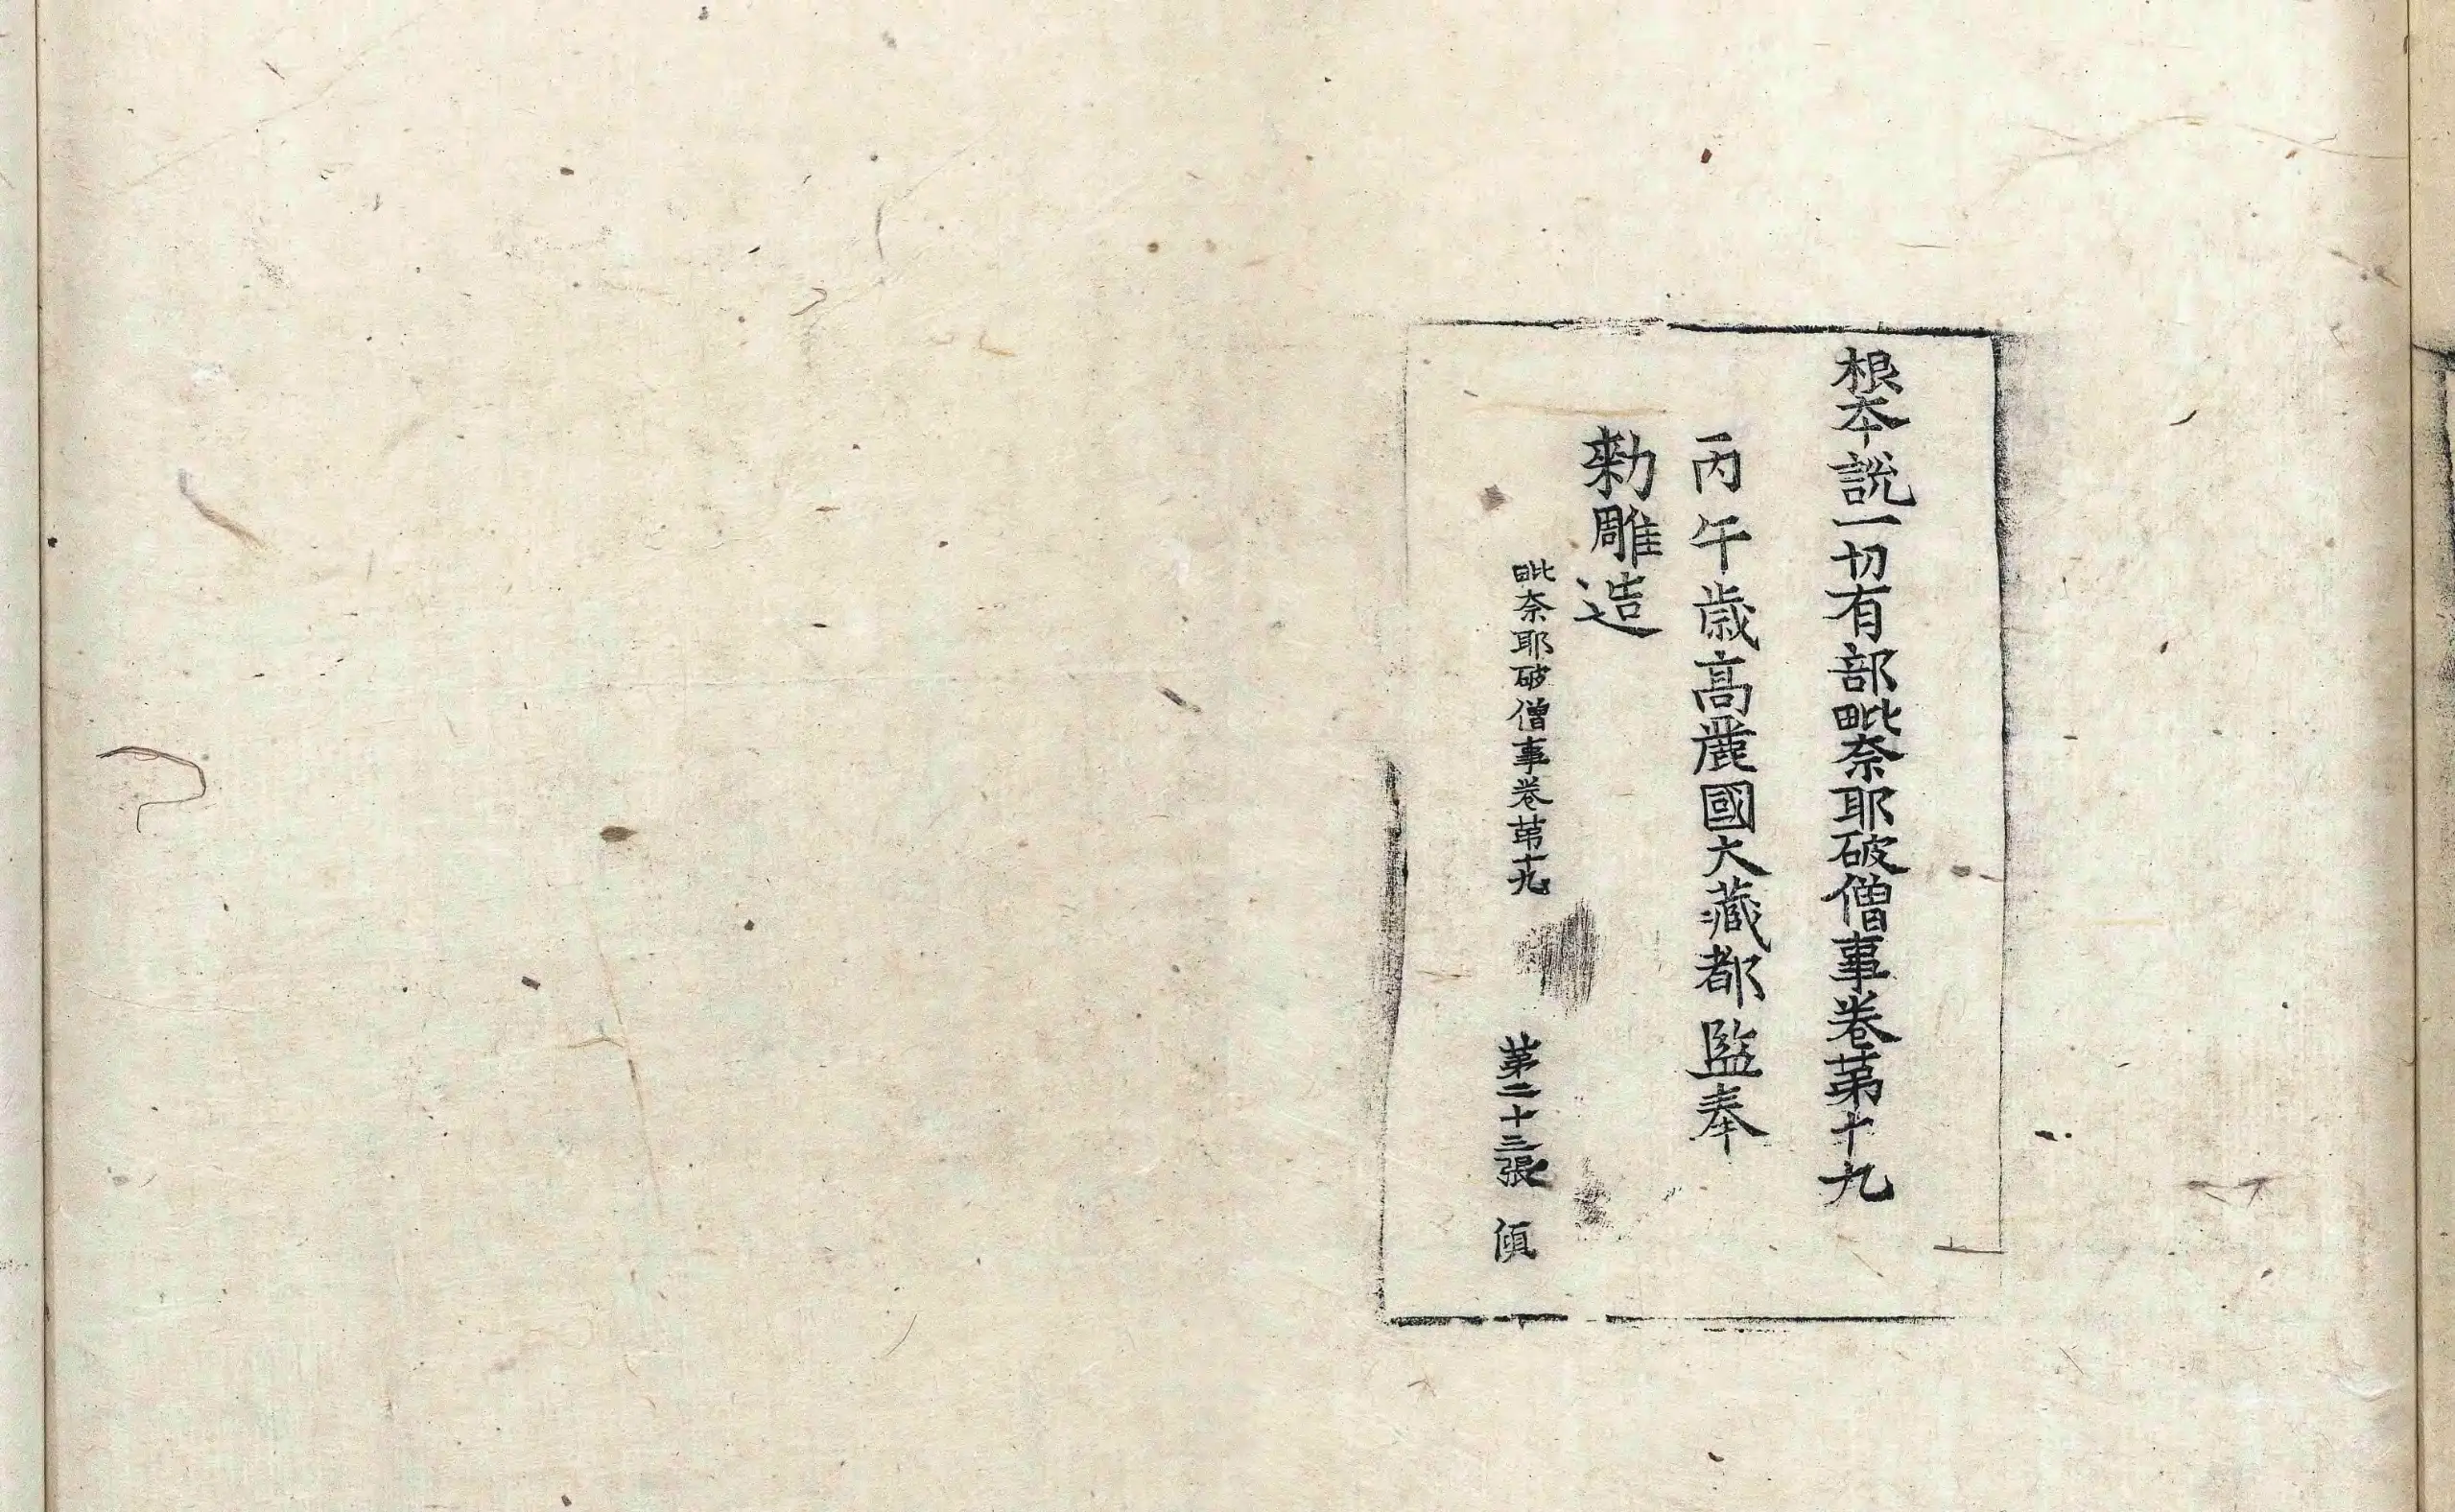 根本說一切有部毗奈耶破僧事卷第十九
丙午歲高麗國大藏都監奉
勑雕造
毗奈耶破僧事卷苐十九 第二十三張 傾